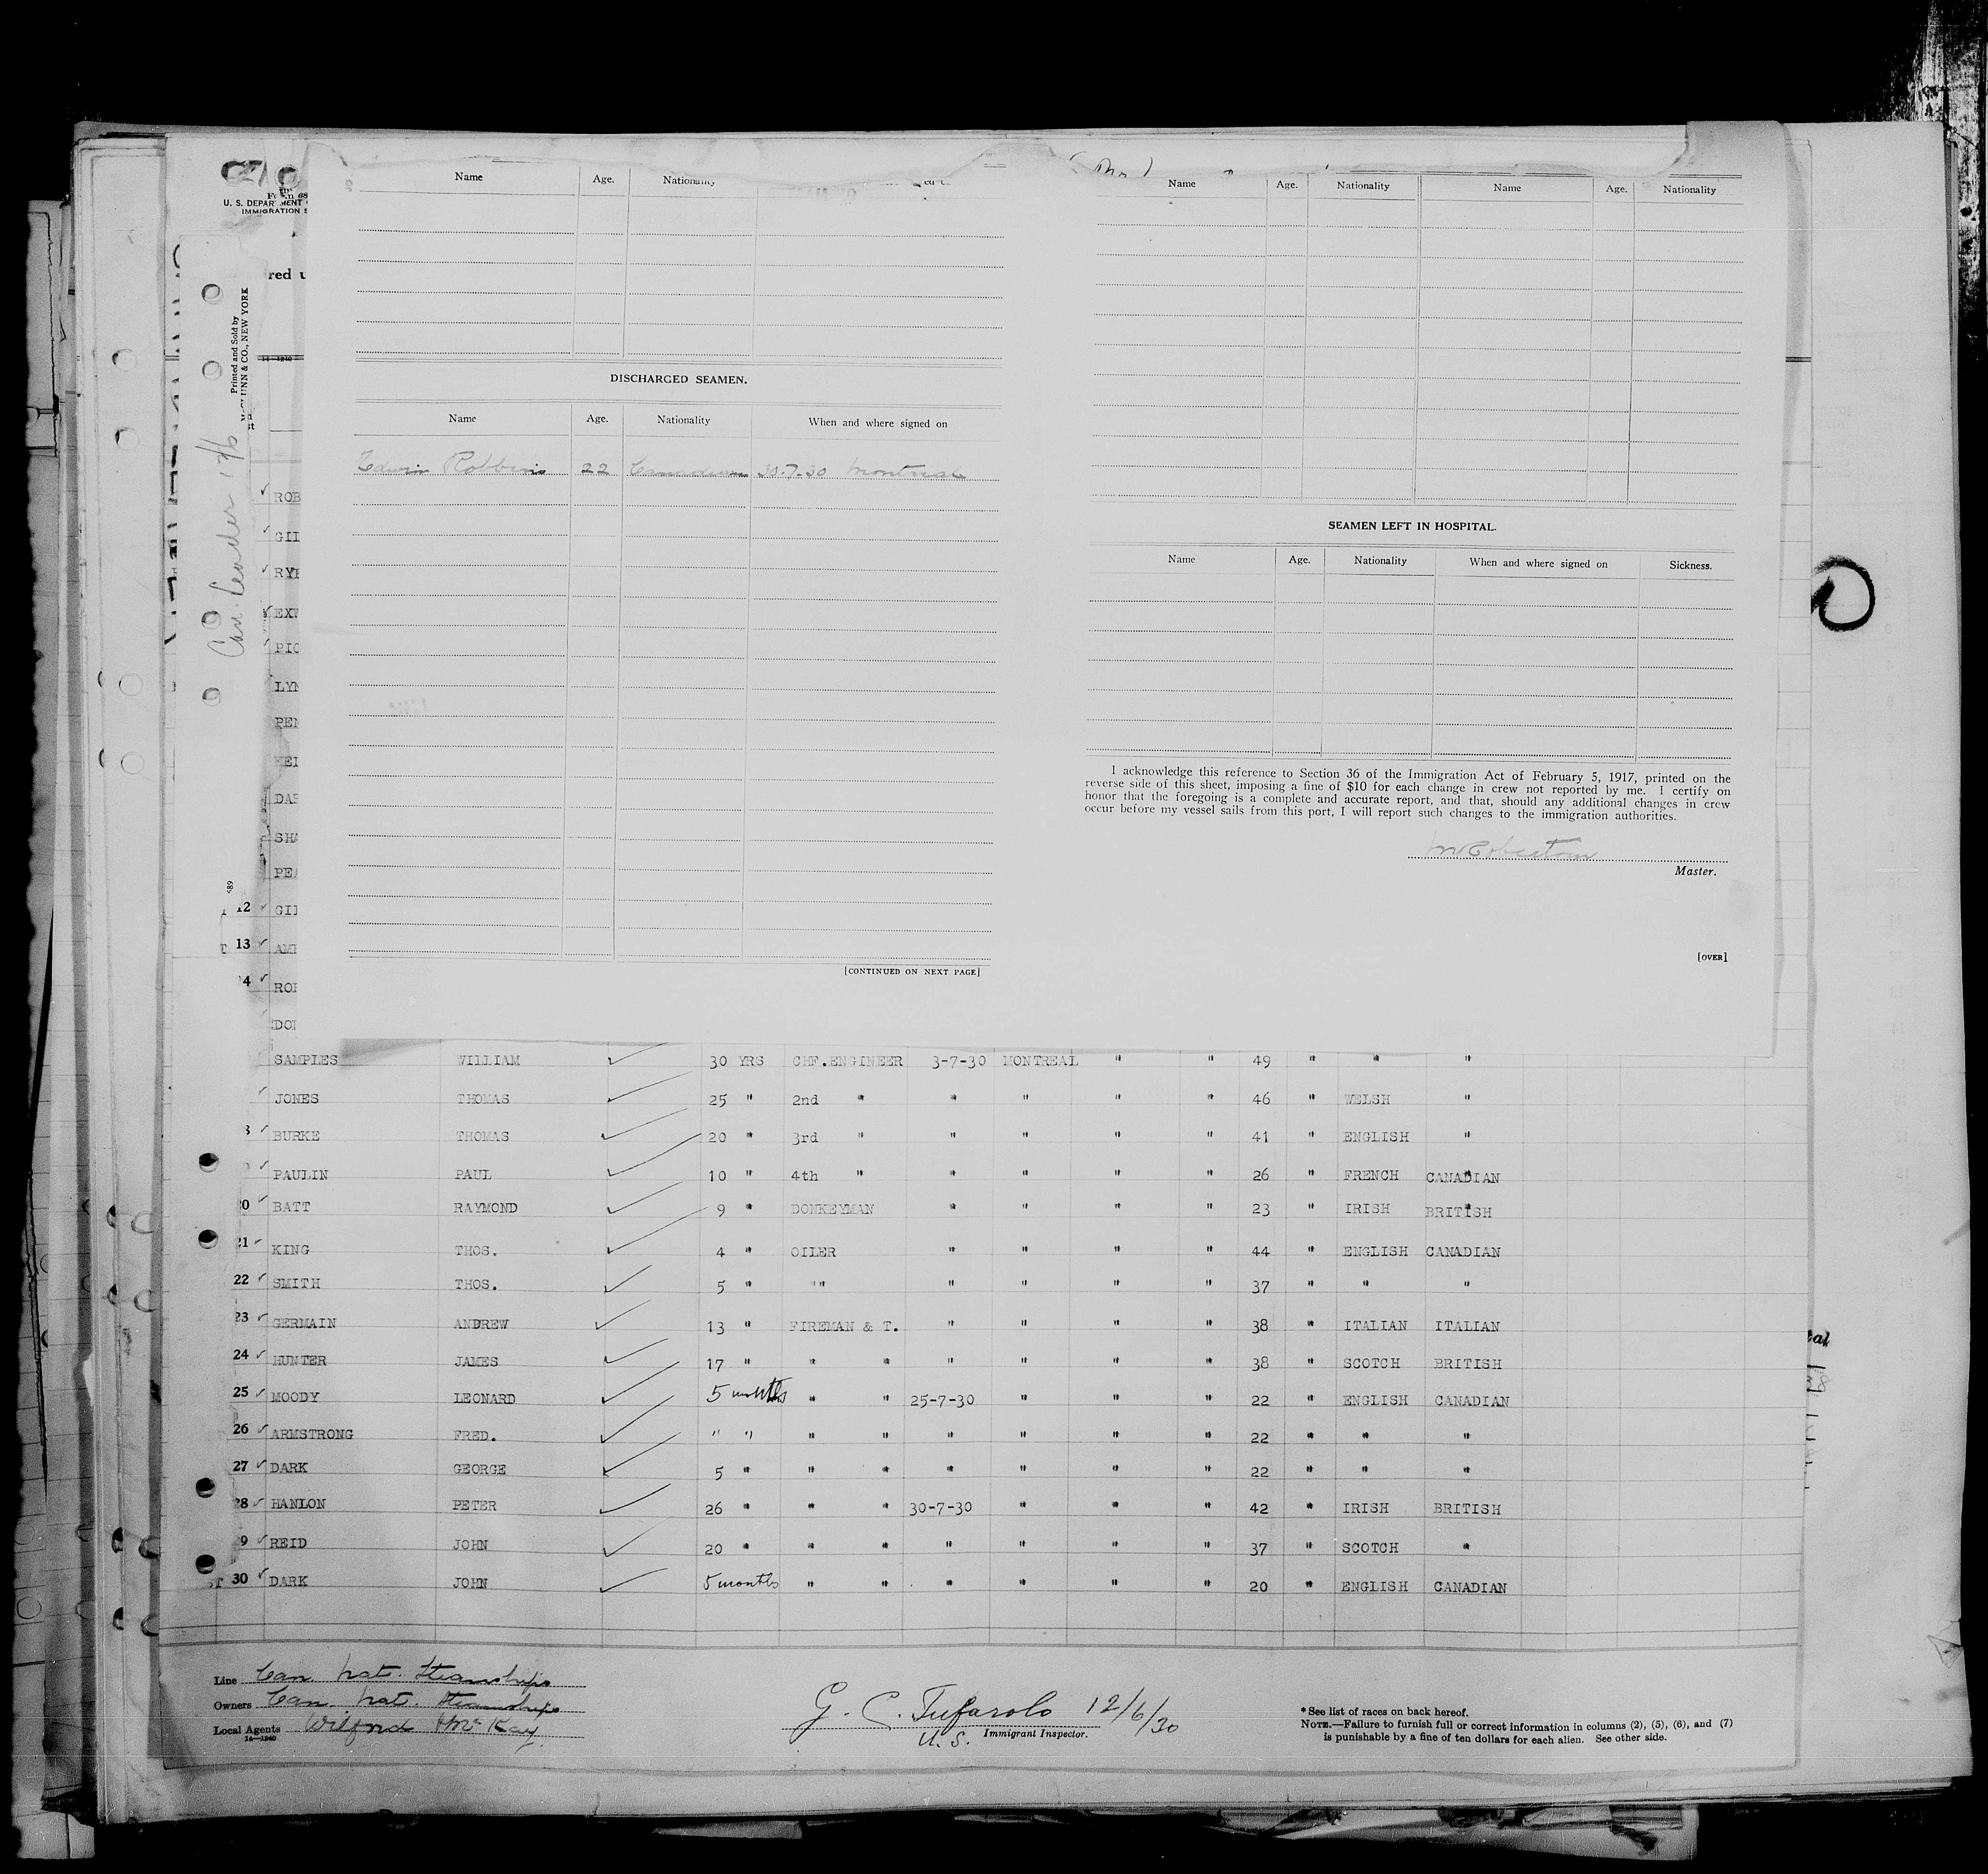 U. S. DEPARTMENT
IMMIGRATION S
red u
Printed and Sold by
NN & CO., NEW YORK
Can. Leader 12/6
Name Age. Nationality
Name Age. Nationality Name Age. Nationality
DISCHARGED SEAMEN.
Name Age. Nationality When and where signed on
Edwin Robbins 22 Canadian 30-7-30 Montreal
SEAMEN LEFT IN HOSPITAL.
Name Age. Nationality When and where signed on Sickness.
I acknowledge this reference to Section 36 of the Immigration Act of February 5, 1917, printed on the
reverse side of this sheet, imposing a fine of $10 for each change in crew not reported by me. I certify on
honor that the foregoing is a complete and accurate report, and that, should any additional changes in crew
occur before my vessel sails from this port, I will report such changes to the immigration authorities.
Master.
[CONTINUED ON NEXT PAGE]
[OVER]
ROB
GIL
RYE
EXW
PIC
LYN
PEN
DAR
SHA
PEA
12 GIL
13 AME
4 ROB
DOI
SAMPLES WILLIAM 30 YRS CHF.ENGINEER 3-7-30 MONTREAL " " 49 " " "
JONES THOMAS 25 " 2nd " " " " " 46 " WELSH "
BURKE THOMAS 20 " 3rd " " " " " 41 " ENGLISH "
PAULIN PAUL 10 " 4th " " " " " 26 " FRENCH CANADIAN
20 BATT RAYMOND 9 " DONKEYMAN " " " " 23 " IRISH BRITISH
21 KING THOS. 4 " OILER " " " " 44 " ENGLISH CANADIAN
22 SMITH THOS. 5 " "" " " " " 37 " " "
23 GERMAIN ANDREW 13 " FIREMAN & T. " " " " 38 " ITALIAN ITALIAN
24 HUNTER JAMES 17 " " " " " " " 38 " SCOTCH BRITISH
25 MOODY LEONARD 5 months " " 25-7-30 " " " 22 " ENGLISH CANADIAN
26 ARMSTRONG FRED. " " " " " " " " 22 " " "
27 DARK GEORGE 5 " " " " " " " 22 " " "
28 HANLON PETER 26 " " " 30-7-30 " " " 42 " IRISH BRITISH
29 REID JOHN 20 " " " " " " " 37 " SCOTCH "
30 DARK JOHN 5 months " " " " " " 20 " ENGLISH CANADIAN
Line Can. Nat. Steamships
Owners Can. Nat. Steamships
Local Agents Wilfred H McKay
14—1240
G. C. Tufarolo 12/6/30
U. S. Immigrant Inspector.
* See list of races on back hereof.
NOTE.—Failure to furnish full or correct information in columns (2), (5), (6), and (7)
is punishable by a fine of ten dollars for each alien. See other side.